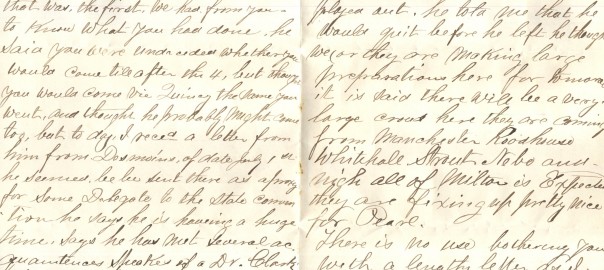 that was the first we had from you
to know what you had done. he
said you were undecided whether you
would come till after the 4, but thought
you would come via Quincy the same you
went, and thought he probably might come
too, but to day I reced a letter from
him from Desmoins, of date July 1, he
he be sent there as a proxy
for some Delegate to the State conven
tion he says he is having a huge
time. says he has met several ac
quaintences speakes of a Dr. Clark
played out. he told me that he
would quit before he left he thought
we or they are making large
preparations here for tomorro
it is said there will be a very
large crowd here they are coming
from Manchester Roodhouse
Whitehall Strout Nebo and
nigh all of Milton is Expected
they are fixing up pretty nice
for Pearl.
There is no use bothering you
with a lengthy letter as I